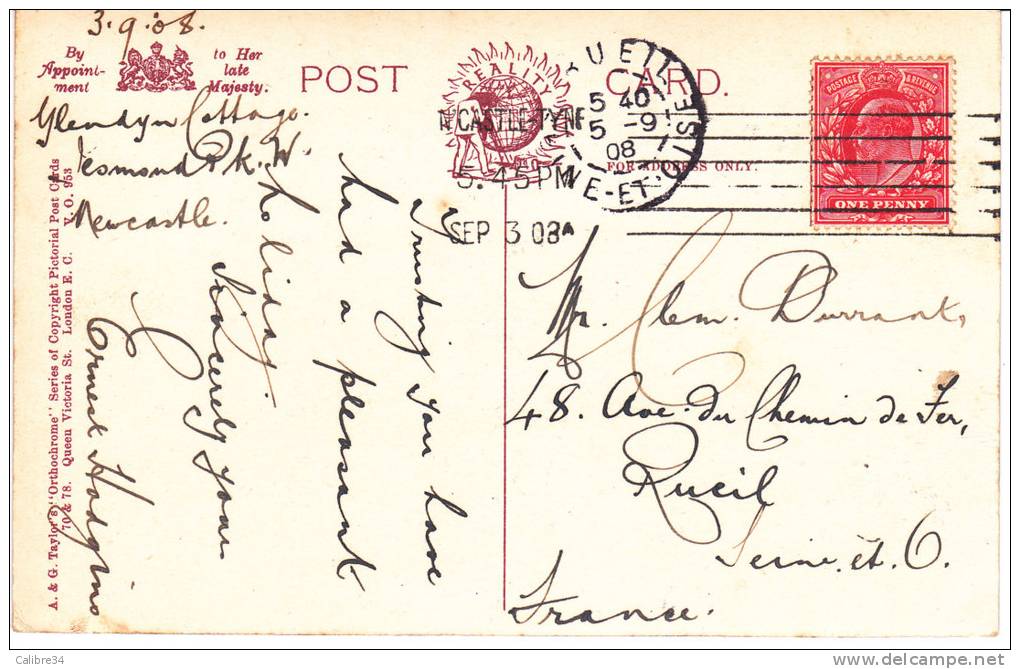 3.9.08.
By
Appoint-
ment
to Her
late
Majesty.
POST
CARD.
REALITY
FOR ADDRESS ONLY.
Glendyn Cottage.
Jesmond Pk. W.
Newcastle.
Trusting you have
had a pleasant
holiday
Sincerely yours
Ernest Hodgins
A. & G. Taylor's "Orthochrome" Series of Copyright Pictorial Post Cards
70 & 78. Queen Victoria St. London E. C. V. O. 953
N'CASTLE-TYNE
5.45 PM
SEP 3 08
RUEIL
5 40
5 - 9
08
SEINE-ET-OISE
POSTAGE & REVENUE
ONE PENNY
Mr. Clem. Durrant,
48. Ave. du Chemin de Fer,
Rueil
Seine. et. O.
France.
Calibre34
www.delcampe.net